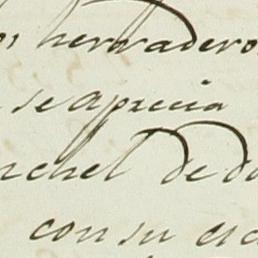 os, herraderos
se aprecia
nchel de d
con su es